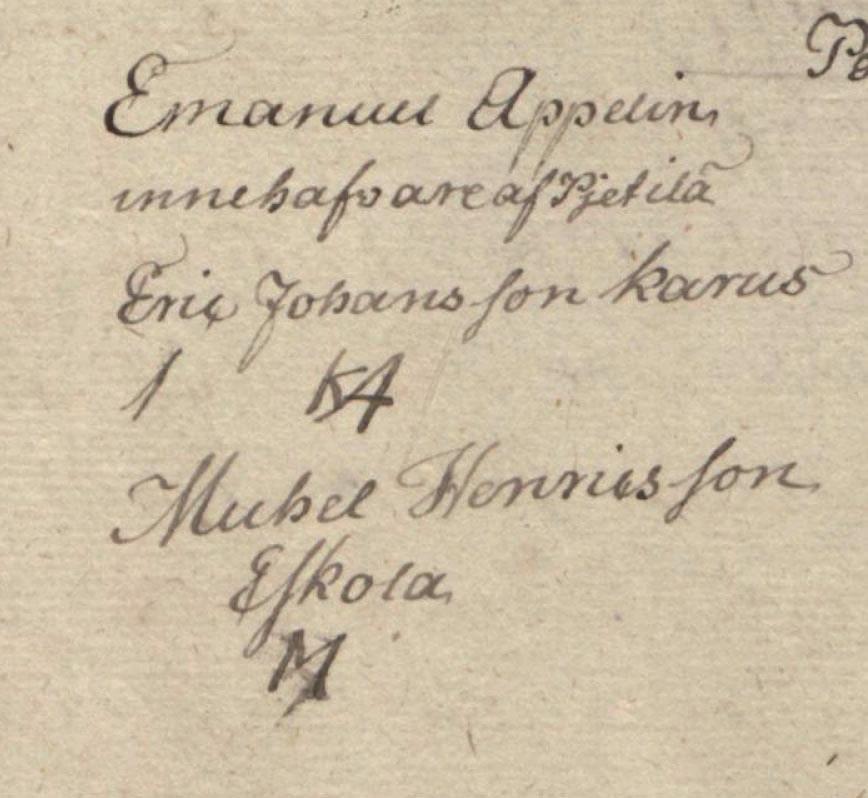 Pe
Emanuel Appelin
innehafvare af Pjetilä
Eric Johansson Karus
Michel Henricsson
Eskola
M